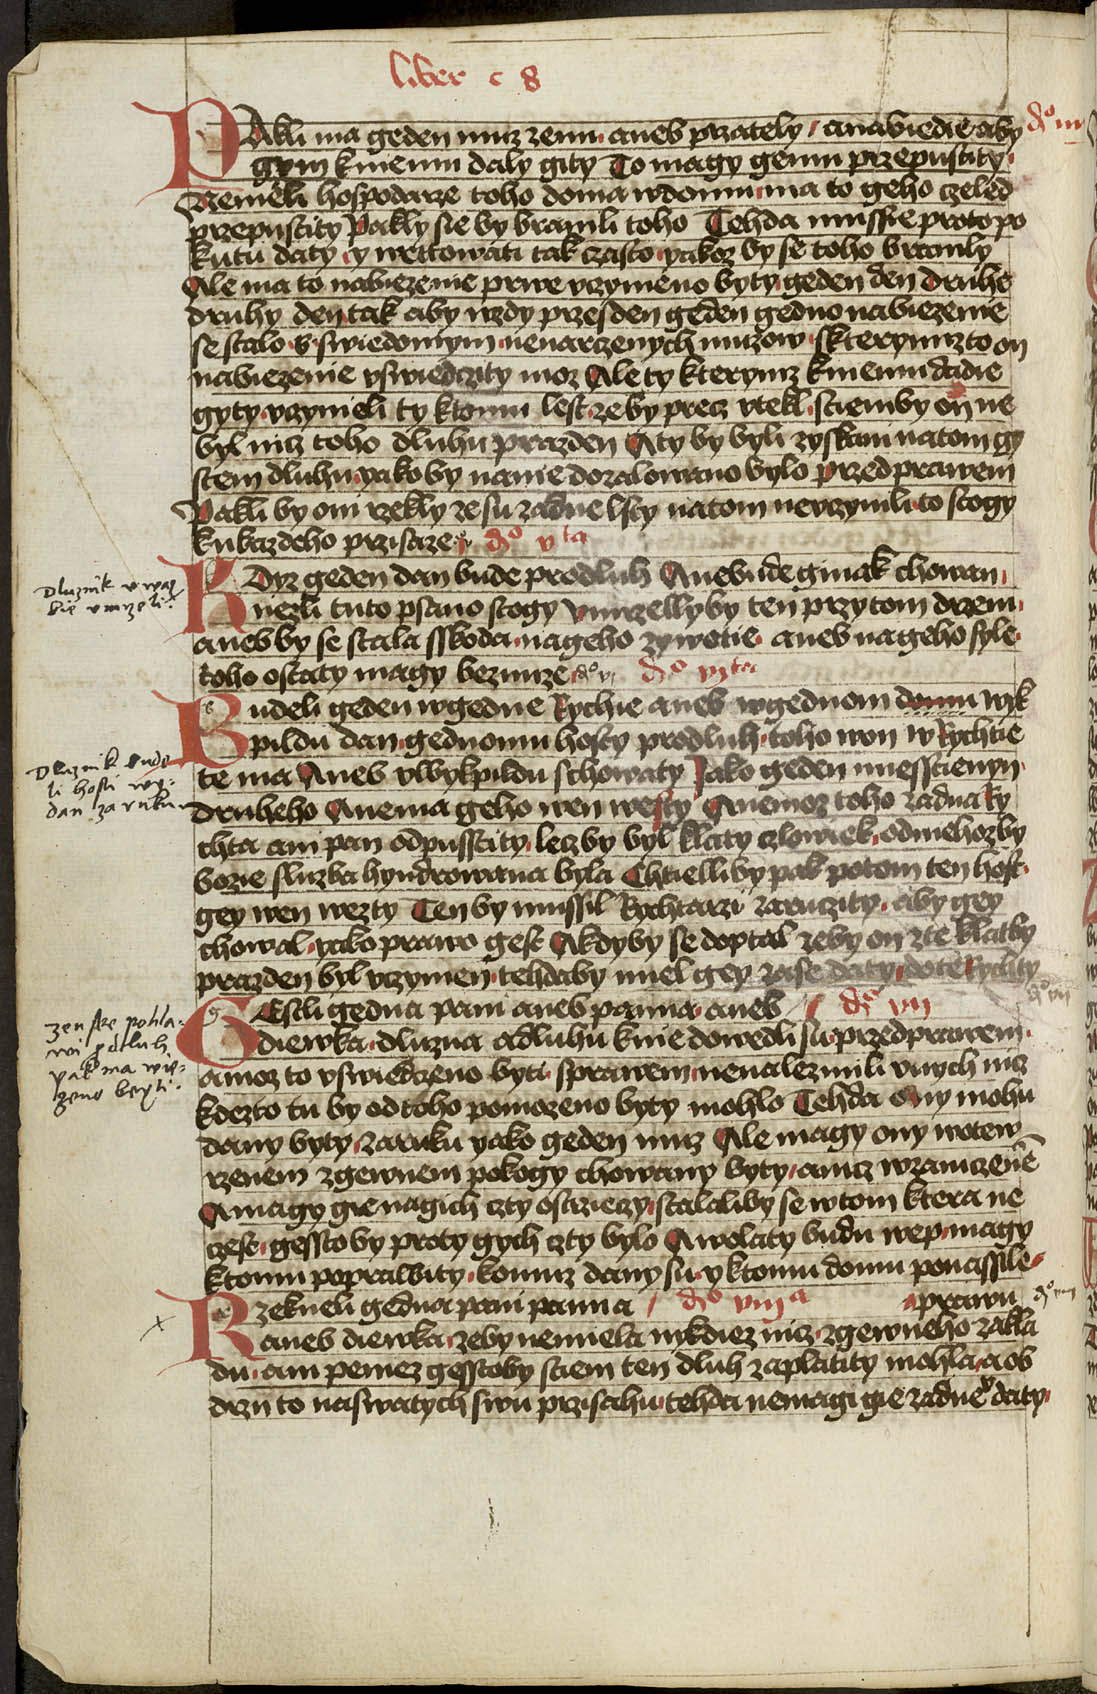 liber c 8
PAkli ma geden muz zenu aneb przately / anabiedie aby
gym kniemu daly gity To magy gemu przepustity
Nemeli hospodarze toho doma wdomu ma to geho czeled
przepustity Pakly sie by branili toho Tehda mussie proto po
kutu daty y wettowati tak czasto yakoz by se toho branily
Ale ma to nabiezenie prwe vczyneno byty geden den druhe
druhy den tak aby wzdy przes den geden gedno nabiezenie
se stalo s swiedomym nenarczenych muzow skterymzto on
nabiezenie vswiedczity moz Ale ty kterymz kniemu dadie
gyty vczyneli ty ktomu lest ze by precz vtekl sciemby on ne
byl niz toho dluhu prazden A ty by byli zyskani na tom gi
stem dluhu yako by na nie dozalowano bylo przed prawem
Pakli by oni rzekly ze su zadne lsty natom nevczynili to stogy
kukazdeho przisaze do vta
KDyz geden dan bude pro dluh A nebude gmak chowan
nezli tuto psano stogy vmrzelly by ten przy tom drzeni
aneb by se stala sskoda na geho zywotie aneb na geho syle
toho ostaty magy bezmze do vita
Dluznik v waz
bie vmrzeli
Budeli geden wgedne Rychtie aneb wgednom domu wyk
pildu dan gednomu hosty pro dluh toho won w Rychtie
te ma Aneb vlwykpildu schowaty Jako geden miesstienyn
druheho A nema geho wen westy A nemoz toho zadna Ry
chta ani pan odpusstity lecz by byl klaty czlowiek od niehoz by
bozie sluzba hyndrowana byla Chtielli by pak potom ten host
gey wen wezty Ten by mussil Rychtarzi zaruczity aby gey
chowal yako prawo gest A kdyby se doptal ze by on z te klatby
prazden byl vczynen tehda by miel gey zase daty do te Rychty
Dluznik bude
li hosti wy
dan za ruku
GEstli gedna pani aneb panna aneb do vii
diewka dluzna a dluhu knie dowedli su przed prawem
a moz to vswiedczeno byti s prawem nenaleznuli v nych niz
kdezto tu by od toho pomozeno byty mohlo Tehda ony mohu
dany byty za ruku yako geden muz Ale magy ony w otew
rzenem zgewnem pokogy chowany byty a niz w zamczene
A magy gie nagich czty ostrziezy stalaliby se w tom ktera ne
czest gessto by proty gych czty bylo A wolaty budu wep magy
ktomu poprawity komuz dany su y ktomu domu ponassile
zenske pohla
wi pdluh
yak ma wie
zeno beyti
Rzekneli gedna pani panna do viiia prawu
aneb diewka ze by nemela nykdiez niz zgewneho zakla
du ani peniez gessto by sciem ten dluh zaplatity mohla a ob
drzy to na swatych swu przisahu tehda nemagi gie zadney daty